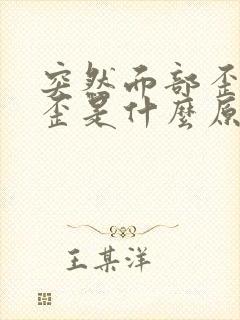 突然而部歪
歪是什麼原
王某洋